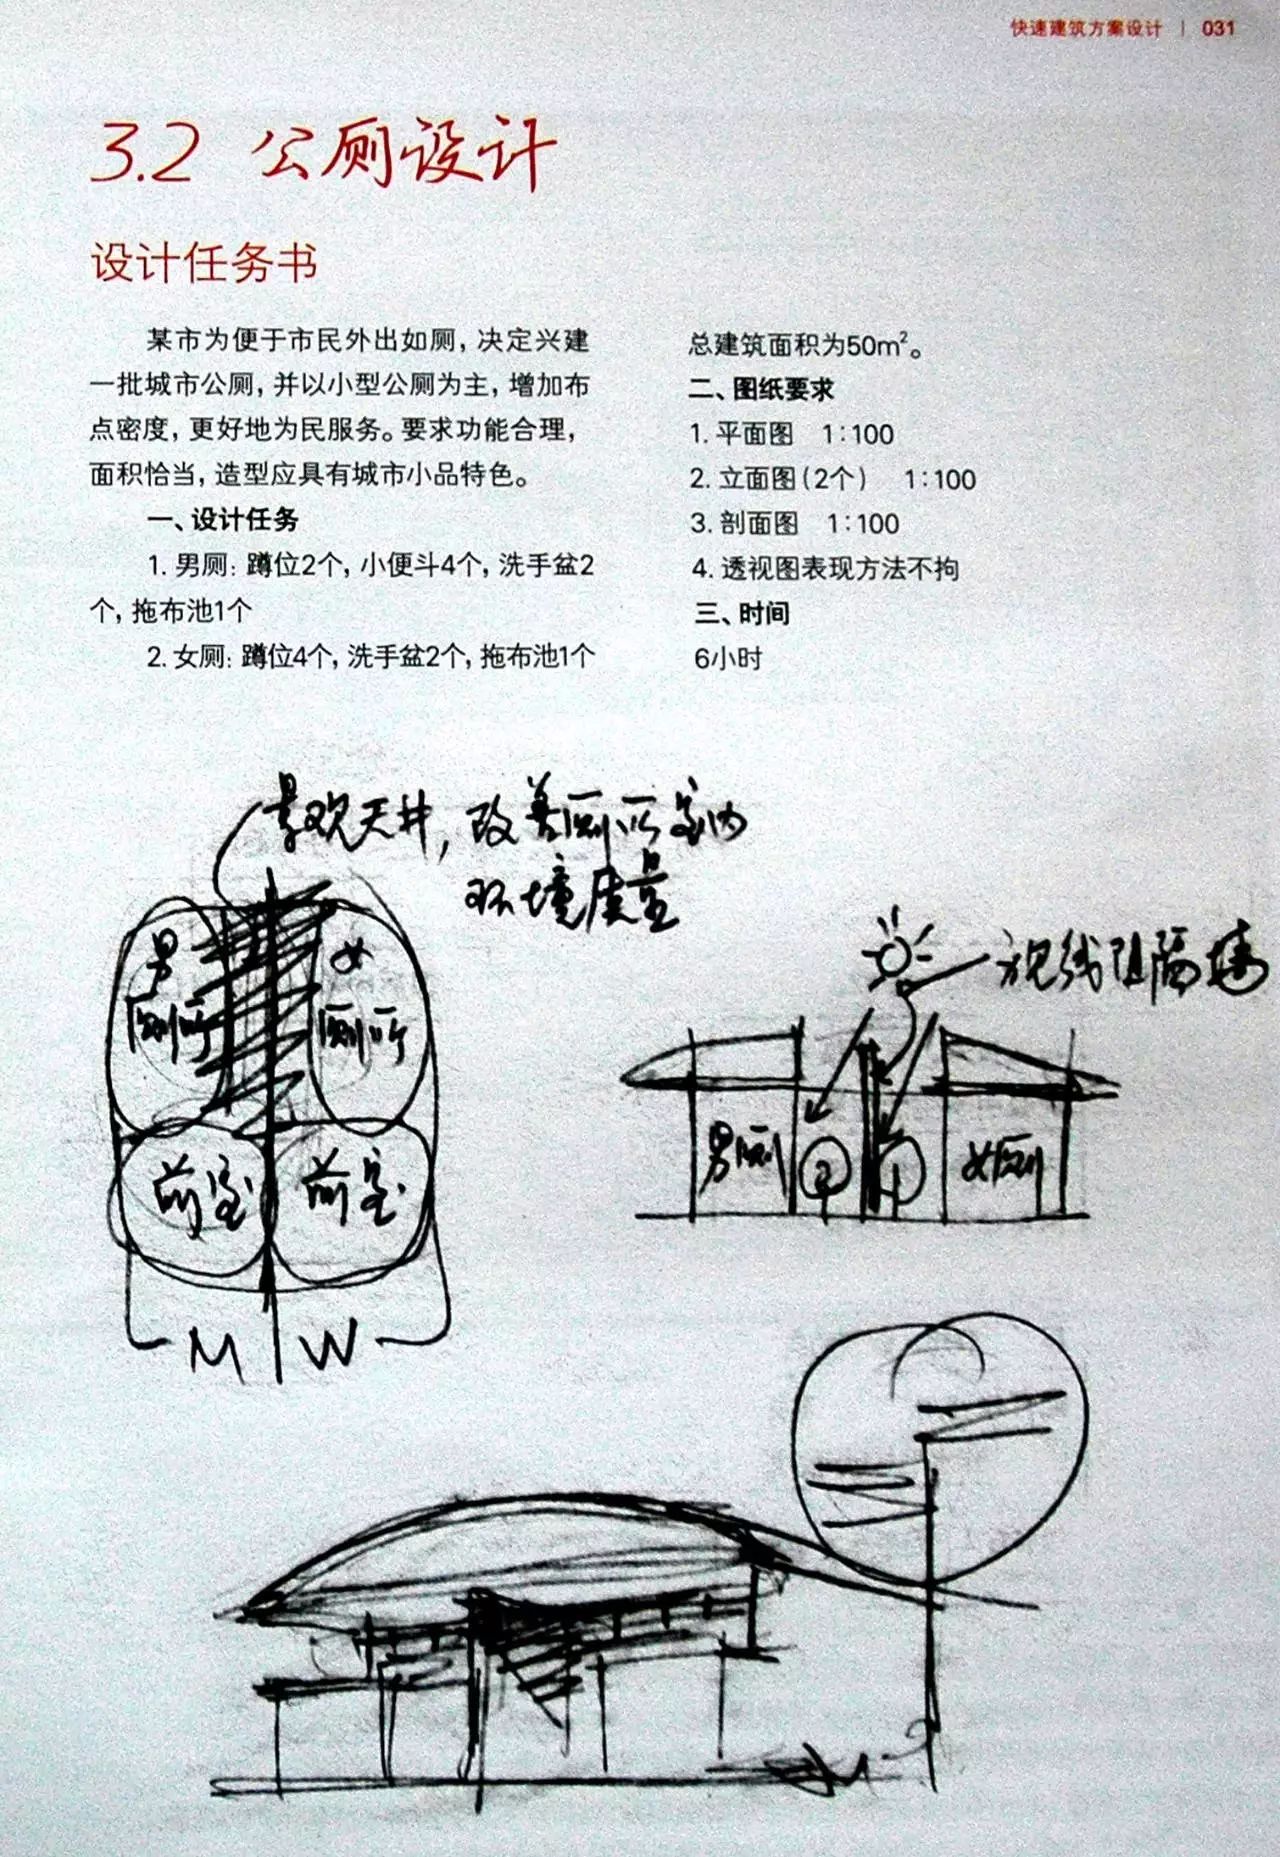 快速建筑方案设计 | 031
3.2 公厕设计
设计任务书
某市为便于市民外出如厕，决定兴建
一批城市公厕，并以小型公厕为主，增加布
点密度，更好地为民服务。要求功能合理，
面积恰当，造型应具有城市小品特色。
一、设计任务
1. 男厕：蹲位2个，小便斗4个，洗手盆2
个，拖布池1个
2. 女厕：蹲位4个，洗手盆2个，拖布池1个
总建筑面积为50m²。
二、图纸要求
1. 平面图 1:100
2. 立面图（2个） 1:100
3. 剖面图 1:100
4. 透视图表现方法不拘
三、时间
6小时
景观天井，改善厕所室内
环境质量
男
厕所
女
厕所
前室
前室
M
W
视线阻隔墙
男厕
女厕